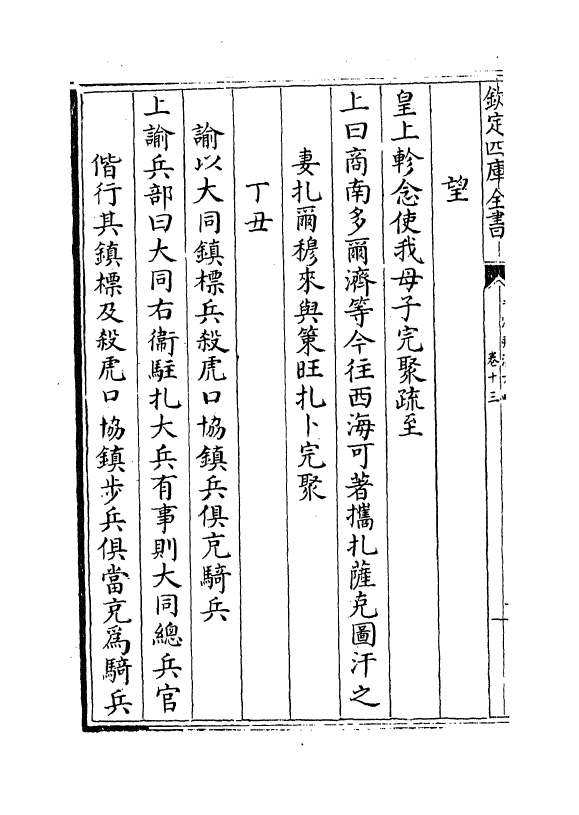 欽定四庫全書
卷十三
望
皇上軫念使我母子完聚疏至
上曰商南多爾濟等今往西海可著攜扎薩克圖汗之
妻扎爾穆來與策旺扎卜完聚
丁丑
諭以大同鎮標兵殺虎口協鎮兵俱充騎兵
上諭兵部曰大同右衞駐扎大兵有事則大同總兵官
偕行其鎮標及殺虎口協鎮步兵俱當充爲騎兵